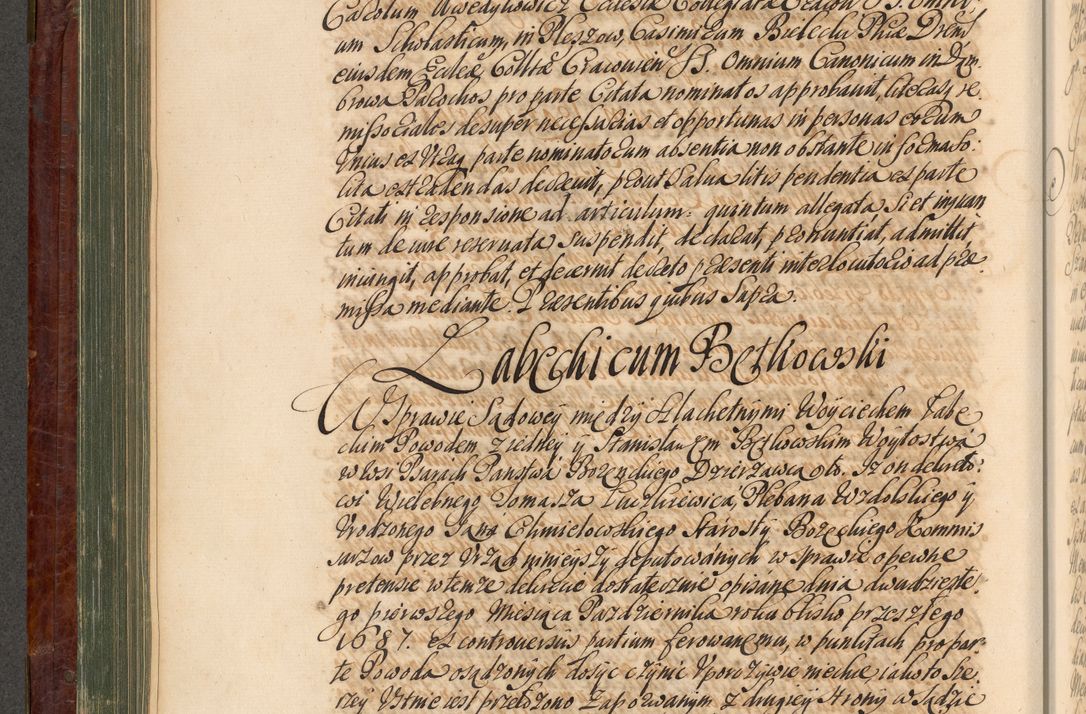 Carolum Awedykowicz Ecclesiæ Collegiatæ Cracovien SS. Omni
um Scholasticum, in Pleszow, Casimirum Bielecki Phiæ Drem
eiusdem Eccleæ Colltæ Cracovien SS. Omnium Canonicum in Dom
browa Parochos pro parte Citata nominatos approbavit, literasq re
missoriales desuper necessarias et opportunas in personas eorum
Unius et Utaq parte nominatorum absentia non obstante in forma so:
lita extrahendas decrevit, prout Salua litis pendentia ex parte
Citati in responsione ad articulum quintum allegata si et inquan
tum de iure reservata suspendit declarat, pronuntiat, admittit
iniungit, approbat, et decernit decreto præsenti interlocutorio ad præ
missa mediante. Præsentibus quibus Supra.
Labechicum Betkowski
W Sprawie Sądowey między Szlachetnymi Woyciechem Labe
ckim Powodem z iedney y Stanisławem Betkowskim Woytostwa
w Wsi Barach Panstwa Bozenckiego Dzierzawca oto. Iz on dekreto:
wi Wielebnego Tomasza Plebana Wzdolskiego y
Urodzonego Jana Chmielowskiego Starosty Bozeckiego Kommis
sarzow przez Urząd ninieyszy deputowanych w sprawie o pewne
pretensie w temze dekrecie dostatecznie opisane dnia dwudzieste
go pierwszego Miesiąca Pazdziernika roku blisko przeszłego
1687. ex controversiis partium ferowanemu, w punktach pro par
te Powoda osądzonych dosyc czynic Uporczywie niechce, iakoto sze
rzey Ustnie iest przełozono Zapozwanym z drugiey strony w Sądzie